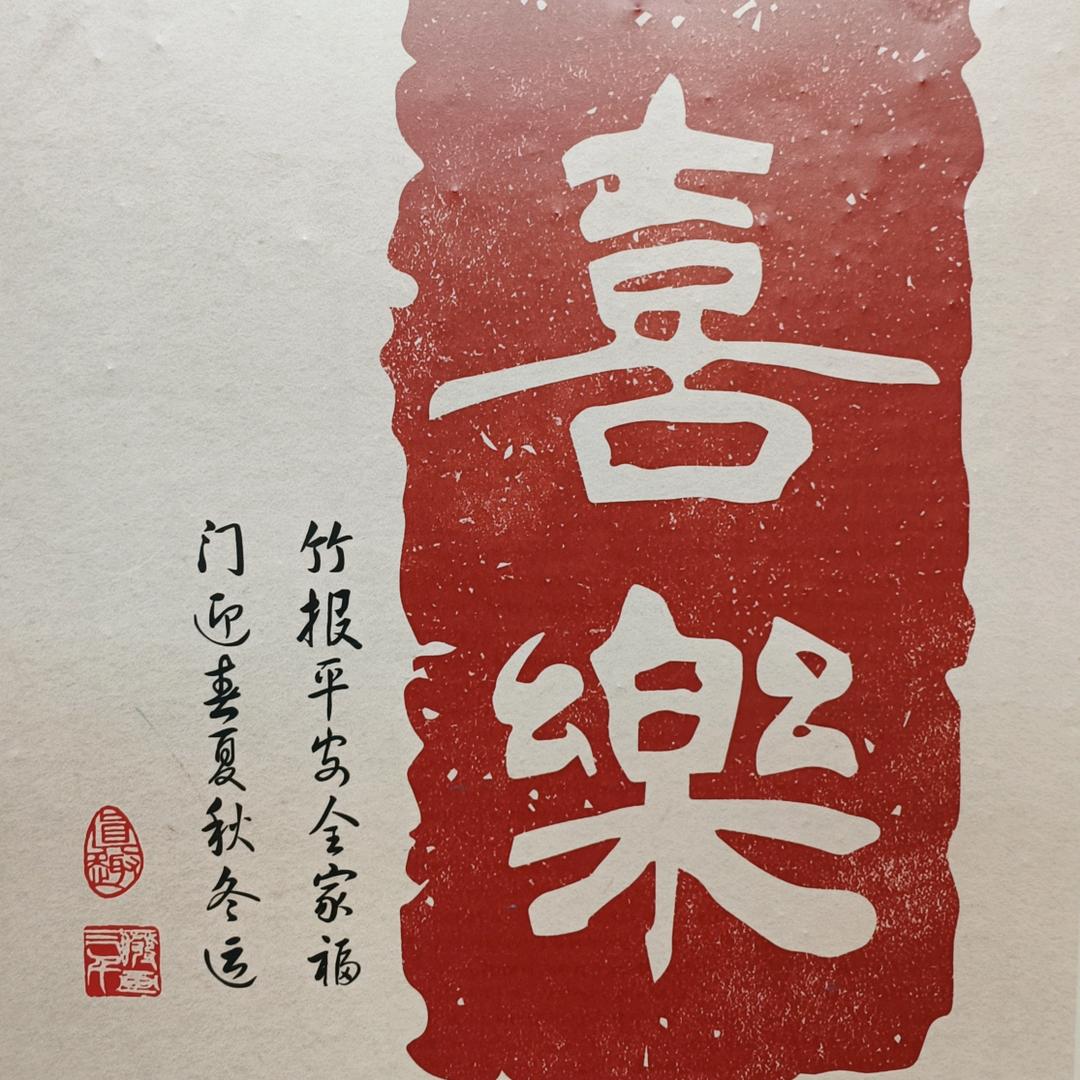 喜樂
竹报平安全家福
门迎春夏秋冬运